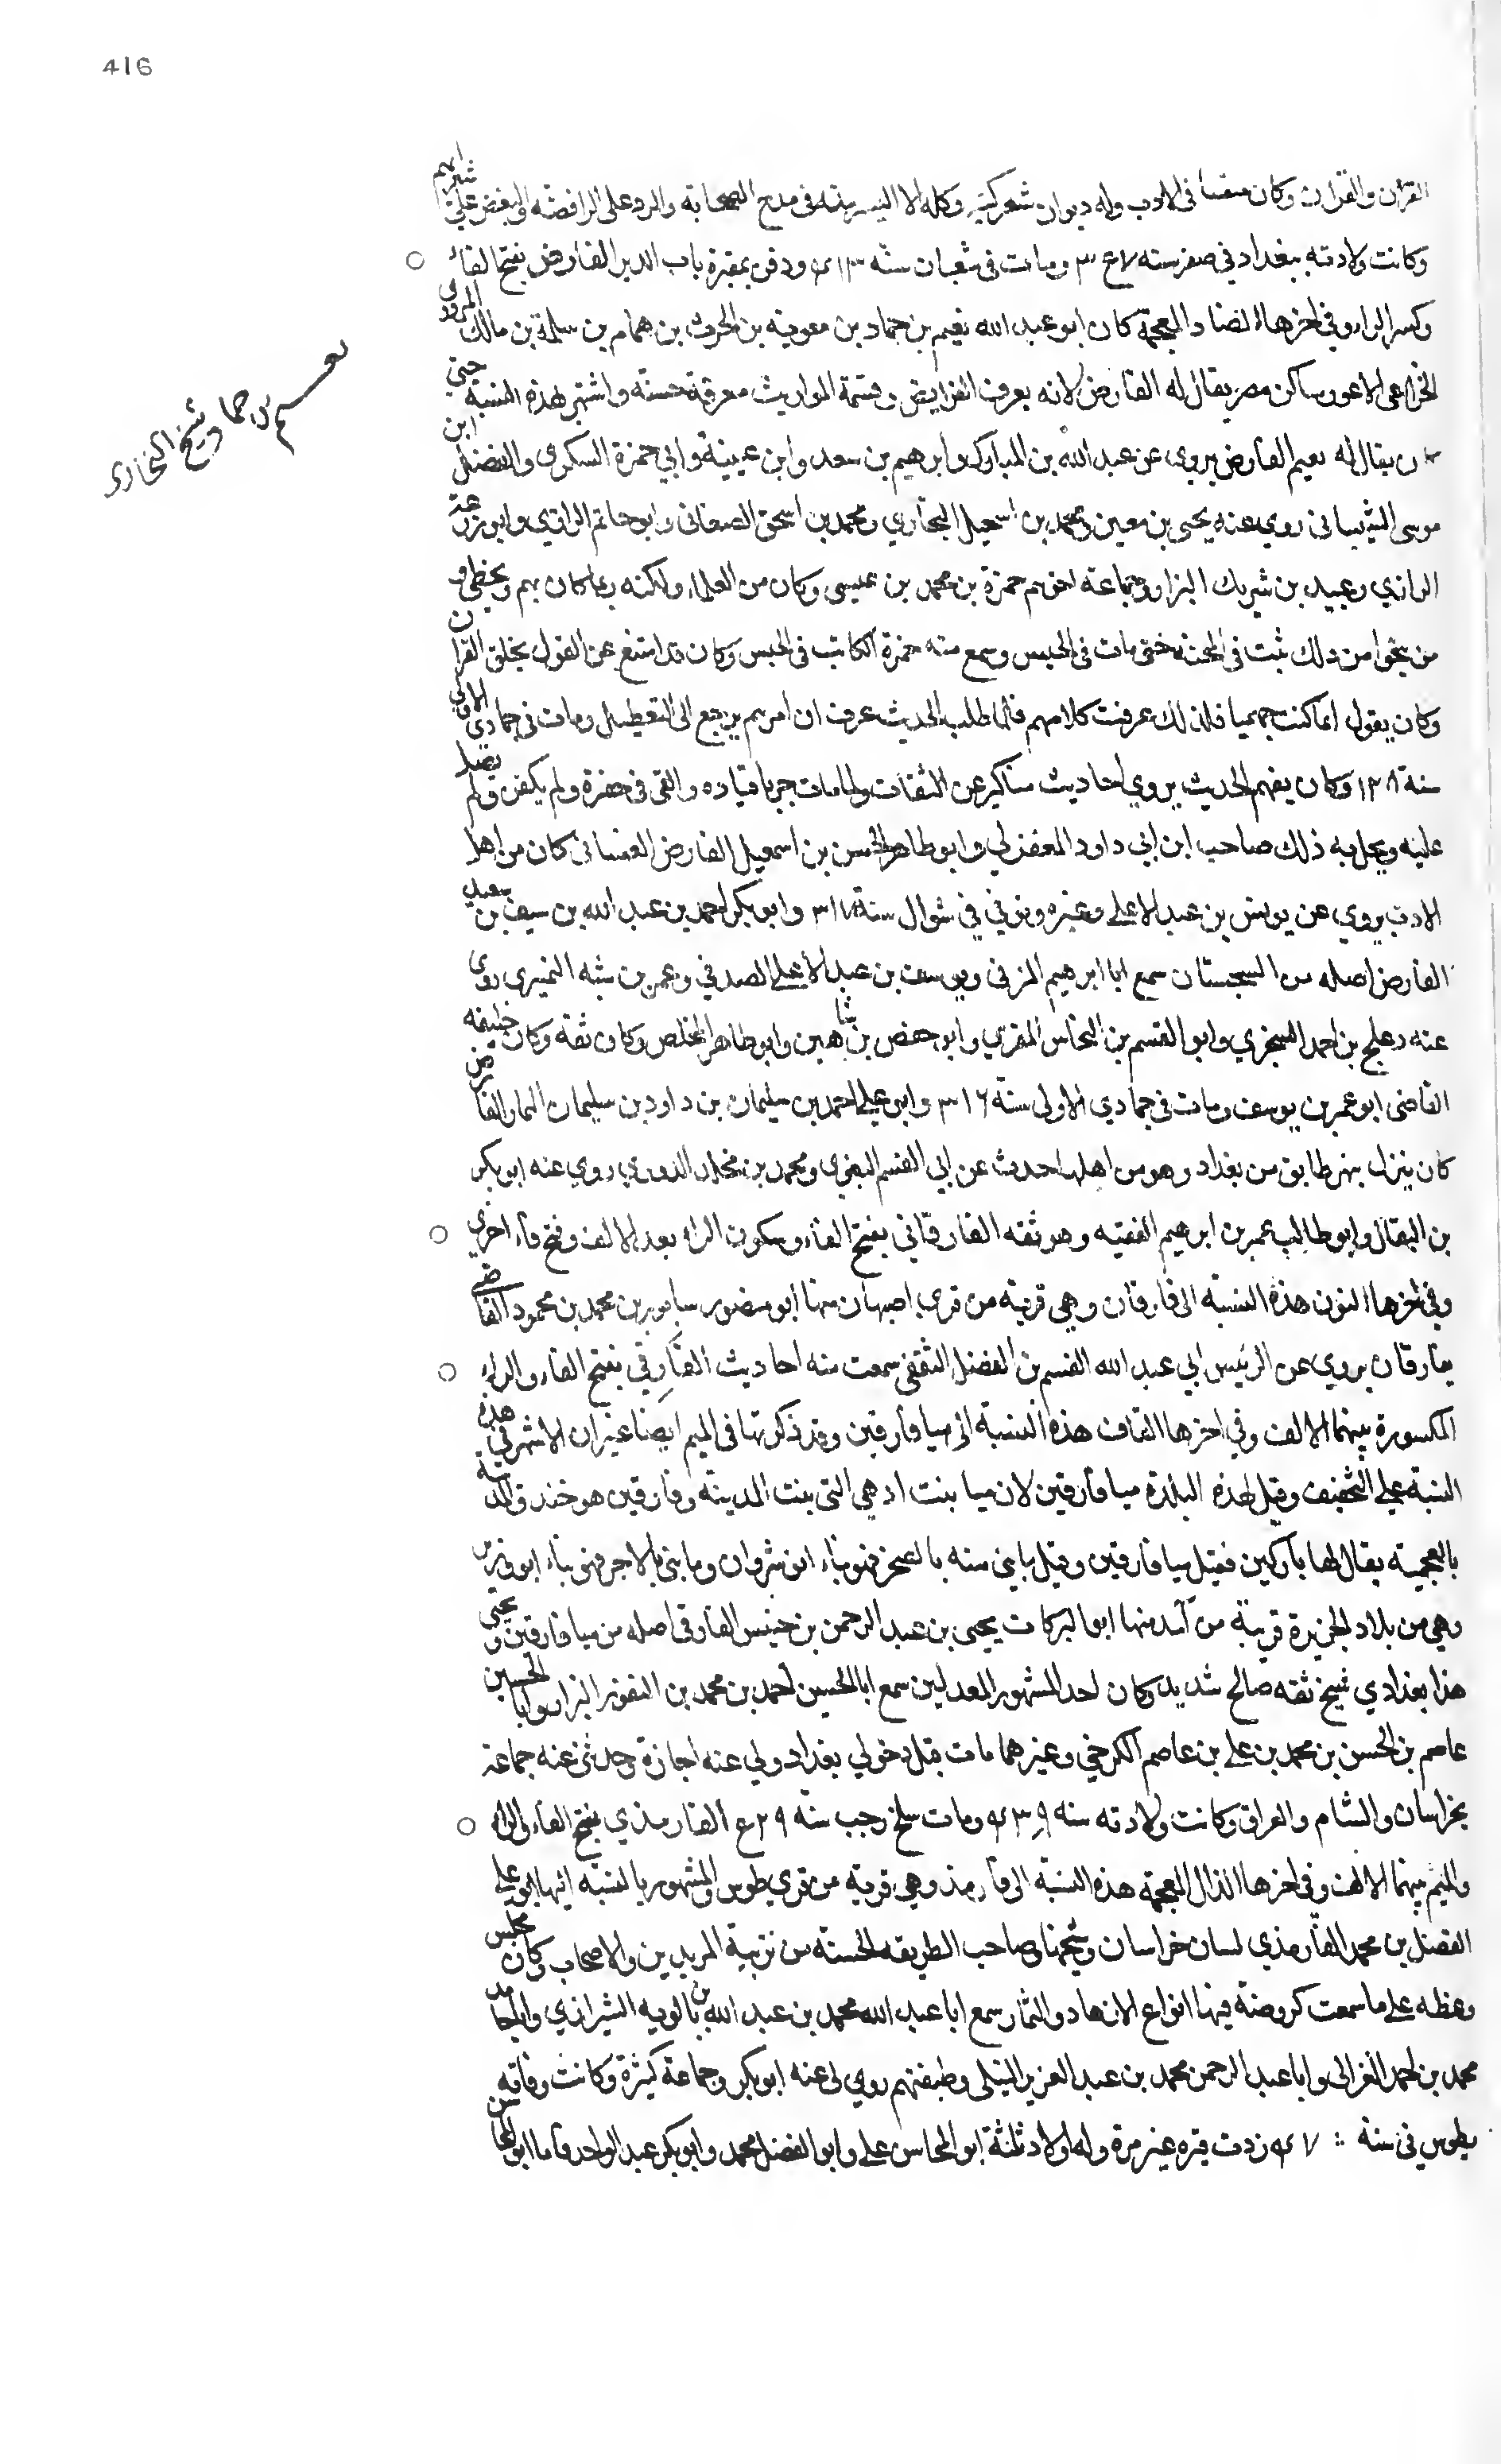 416
القرآن والقرآت وكان متفننا في الادب وله ديوان شعر كبير وكله الا اليسر منه في مدح الصحابة والرد على الرافضة والبغض على شعرايهم
وكانت ولادته ببغداد في صفر سنه ومات في شعبان سنة ودفن بمقبرة باب الدير الفارض بفتح الفاء
وكسر الراء وفي اخرها الضاد المعجمة كان ابو عبد الله نعيم بن حماد بن معوية بن الحرث بن همام بن سلمة بن مالك المروزي
الخزاعي الاعور ساكن مصر يقال له الفارض لانه يعرف الفرايض وقسمة المواريث معرفة حسنة واشتهر بهذه النسبة حتى
كان يقال له نعيم الفارض يروي عن عبد الله بن المبارك وابرهيم بن سعد وابن عيينة وابي حمزة السكري والفضل ابن
موسى الشيباني روي عنه يحيى بن معين ومحمد بن اسمعيل البخاري ومحمد بن اسحق الصغاني وابو حاتم الرازي وابو زرعة
الرازي وعبيد بن شريك البزار وجماعة اخرهم حمزة بن محمد بن عيسى وكان من العلماء ولكنه ربما كان يهم ويخطي و
من ينجوا من ذلك ثبت في المحنة حتى مات في الحبس وسمع منه حمزة الكاتب في الحبس وكان قد امتنع عن القول بخلق القران
وكان يقول انما كنت جهميا فلذلك عرفت كلامهم فلما طلبت الحديث عرفت ان امرهم يرجع الى التعطيل ومات في جمادي الاولى
سنة وكان يفهم الحديث يروي احاديث مناكير عن الثقات ولما مات جر باقياده والقي في حفرة ولم يكفن ولم يصل
عليه وفعل به ذلك صاحب ابن ابي داود المعتزلي وابو طاهر الحسن بن اسمعيل الفارض الغساني كان من اهل
الادب يروي عن يونس بن عبد الاعلى وغيره وتوفي في شوال سنة ٣١٨ وابو بكر احمد بن عبد الله بن سيف بن سعيد
الفارض اصله من السجستان سمع ابا ابرهيم المزني ويوسف بن عبد الاعلى الصدفي وعمر بن شبه النميري روى
عنه دعلج بن احمد السجزي وابو القسم بن النخاس المقري وابو حفص بن شاهين وابو طاهر المخلص وكان ثقه وكان خليفه
القاضي ابو عمر بن يوسف ومات في جمادي الاولى سنة ٣١٦ وابي علي احمد بن سليمان بن داود بن سليمان التمار الفارض
كان ينزل بنهر طابق من بغداد وهو من اهلها حدث عن ابي القسم البغوي ومحمد بن مخلد الدوري روي عنه ابو بكر
بن البقال وابو طالب عمر بن ابرهيم الفقيه وهو ثقه الفارفاني بفتح الفاء وسكون الراء بعد الالف وفتح فاء اخري
وفي اخرها النون هذه النسبة الى فارفان وهي قرية من قري اصبهان منها ابو منصور سابور بن محمد بن محمود القاضي
بفارفان يروي عن الرئيس ابي عبد الله القسم بن الفضل الثقفي سمعت منه احاديث الفارقي بفتح الفاء والراء
المكسورة بينهما الالف وفي اخرها القاف هذه النسبة الى ميافارقين وقد ذكرتها في الميم ايضا غير ان الاشهر في هذه
النسبة على التخفيف وقيل لهذه البلدة ميافارقين لان ميا بنت اد هي التي بنت المدينة وفارقين هو خندق المدينة
بالعجمية يقال لها باركين فقيل ميافارقين وقيل ما بني منه بالصخر فهو بناء انوشروان وما بني بالاجر فهو بناء ابرويز
وهي من بلاد الجزيرة قريبة من آمد منها ابو البركات يحيى بن عبد الرحمن بن حبيش الفارقي اصله من ميافارقين ويحيى
هذا بغدادي شيخ ثقه صالح شديد وكان احد الشهور المعدلين سمع ابا الحسين احمد بن محمد بن النقور البزار وابا الحسين
عاصم بن الحسن بن محمد بن علي بن عاصم الكرخي وغيرهما مات قبل دخولي بغداد ولي عنه اجازة وحدثني عنه جماعة
بخراسان والشام والعراق وكانت ولادته سنه ومات سلخ رجب سنة الفارمذي بفتح الفاء والراء
والميم بينهما الالف وفي اخرها الذال المعجمة هذه النسبة الى فارمذ وهي قرية من قري طوس والمشهور بالنسبة اليها ابو علي
الفضل بن محمد الفارمذي لسان خراسان وشيخها وصاحب الطريقه الحسنة من تربية المريدين والاصحاب وكان مجلس
وعظه على ما سمعت كروضة فيها انواع الازهار والثمار سمع ابا عبد الله محمد بن عبد الله بن باكويه الشيرازي وابا حامد
محمد بن احمد الغزالي وابا عبد الرحمن محمد بن عبد العزيز النيلي وطبقتهم روي لي عنه ابو بكر وجماعة كثيرة وكانت وفاته
بطوس في سنة زرت قبره غير مرة وله اولاد ثلثة ابو المحاسن علي وابو الفضل محمد وابو بكر عبد الواحد فاما ابو المحاسن
نعيم بن حماد شيخ البخاري